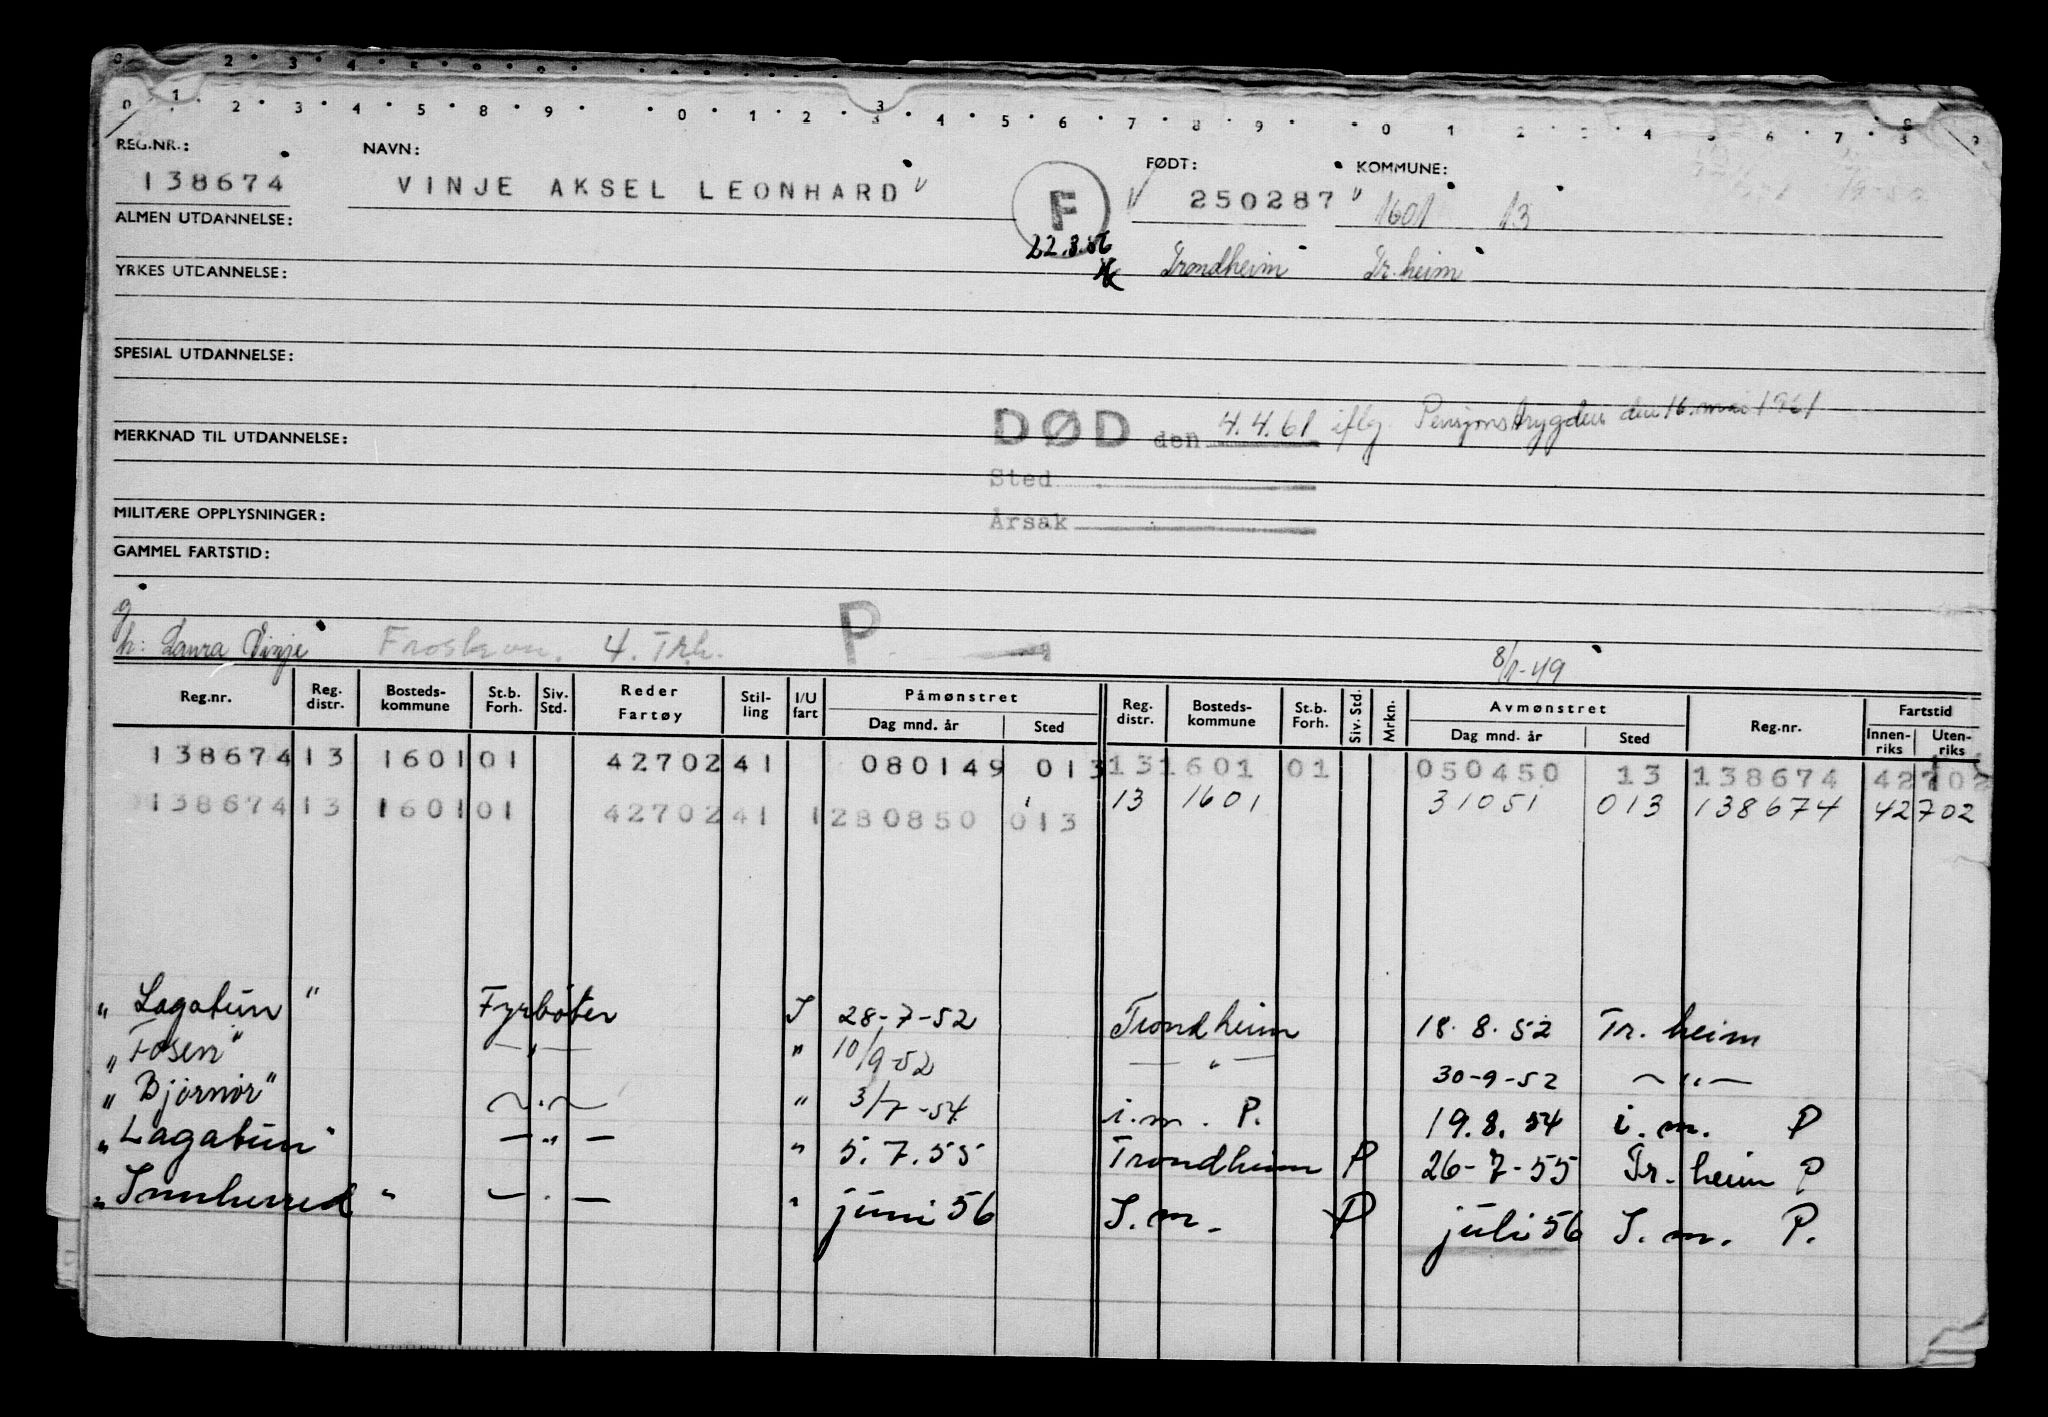 0 1 2 3 4 5 8 9 0 1 2 3 4 5 6 7 8 9 0 1 2 3 4 5 6 7 8 9
REG.NR.: NAVN: FØDT: KOMMUNE:
138674 VINJE AKSEL LEONHARD F 250287 1601 13
ALMEN UTDANNELSE:
22.8.56
YRKES UTDANNELSE: Trondheim Tr.heim
SPESIAL UTDANNELSE:
DØD den 4.4.61 iflg. Pensjonstrygden den 16. mai 1961
MERKNAD TIL UTDANNELSE:
Sted
MILITÆRE OPPLYSNINGER: Årsak
GAMMEL FARTSTID:
g
h: Laura Vinje 4. Trh. P 8/1-49
Reg.nr. Reg. distr. Bosteds-kommune St.b. Forh. Siv. Std. Reder Fartøy Stil-ling I/U fart Påmønstret Dag mnd. år Sted Reg. distr. Bosteds-kommune St.b. Forh. Siv. Std. Mrkn. Avmønstret Dag mnd. år Sted Reg.nr. Fartstid Innen-riks Uten-riks
138674 13 1601 01 42702 41 080149 013 13 1601 01 050450 13 138674 42702
138674 13 1601 01 42702 41 1 280850 013 13 1601 31051 013 138674 42702
„ Lagatun " Fyrbøter I 28-7-52 Trondheim 18.8.52 Tr.heim
„ Fosen" — „ — " 10/9-52 — " — 30-9-52 — " —
„ Bjørnør" — " — " 3/7-54 i.m. P. 19.8.54 i.m. P
„ Lagatun" — " — " 5.7.55 Trondheim P 26-7-55 Tr.heim P
„ Innherred " — " — " juni 56 I.m. P juli 56 I.m. P.